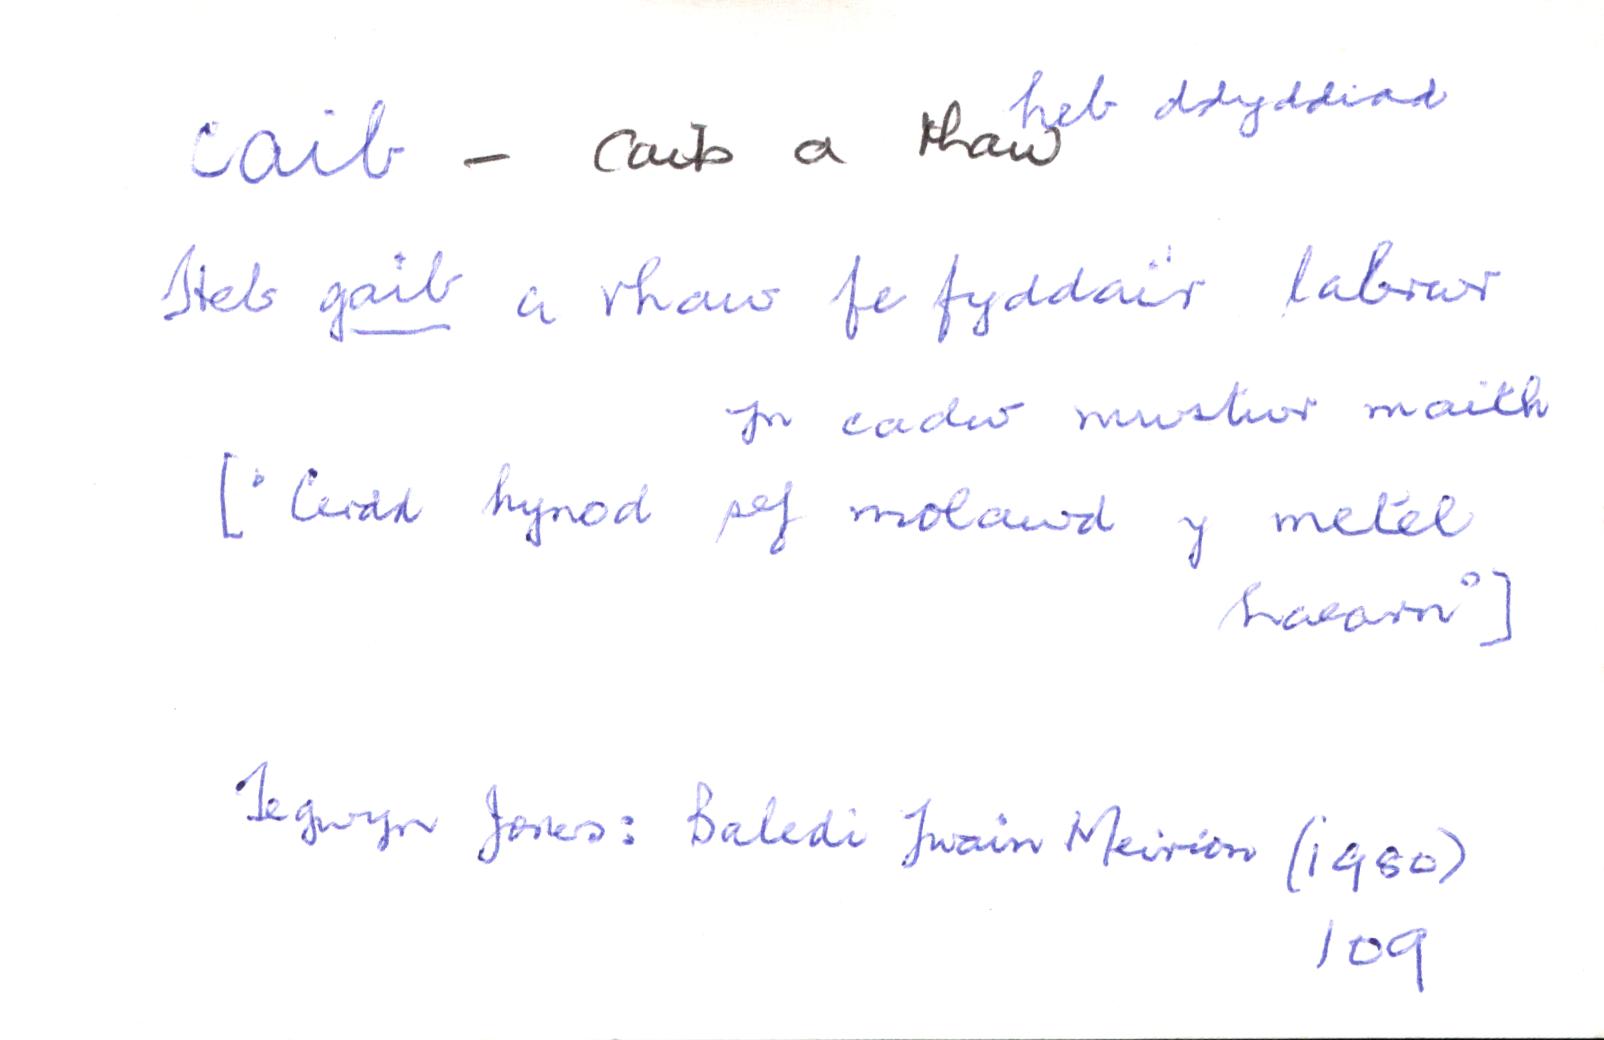 heb ddyddiad
caib – Caib a rhaw
Heb gaib a rhaw fe fyddai'r labrwr
yn cadw mwstwr maith
['Cerdd hynod sef molawd y metel
haearn']
Tegwyn Jones: Baledi Ywain Meirion (1980)
109